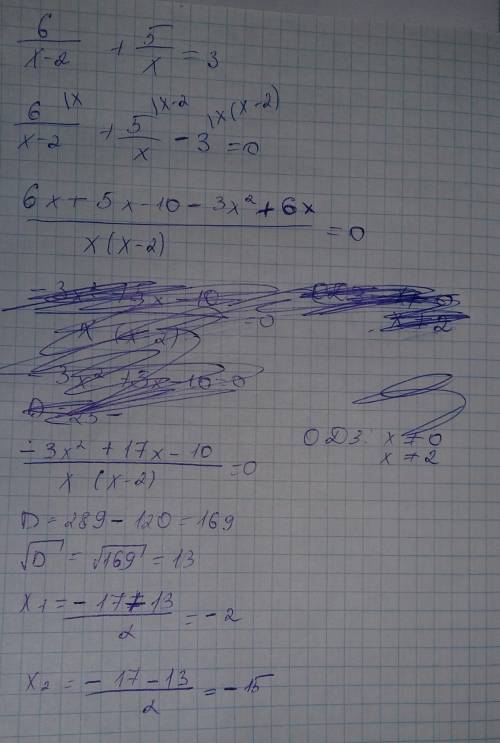 6/(x-2) + 5/x = 3
6\x/(x-2) + 5\x-2/x - 3\x(x-2) = 0
(6x + 5x - 10 - 3x² + 6x)/(x(x-2)) = 0
(-3x² + 17x - 10)/(x(x-2)) = 0
ОДЗ: x ≠ 0
x ≠ 2
D = 289 - 120 = 169
√D = √169 = 13
x1 = (-17+13)/2 = -2
x2 = (-17-13)/2 = -15